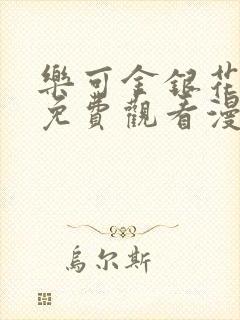 樂可金銀花
免費觀看漫
烏尔斯